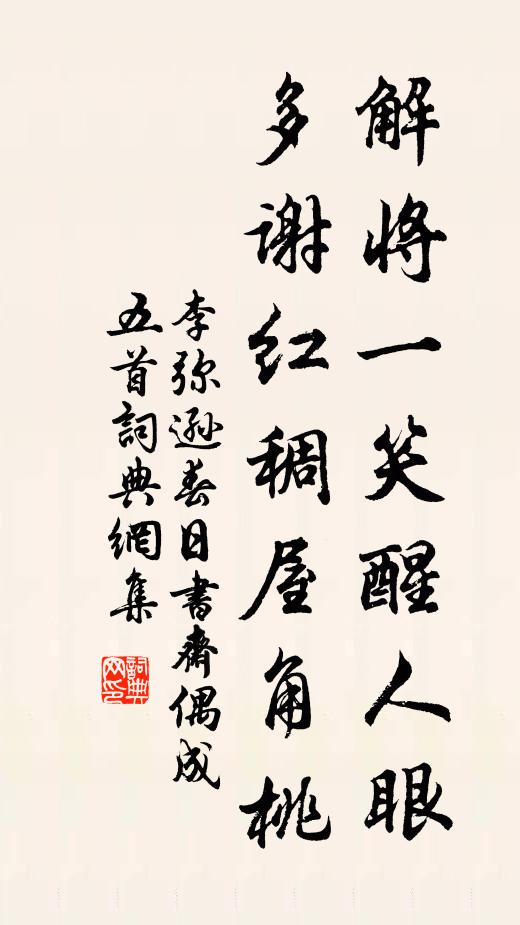 解将一笑醒人眼
多谢红稠屋角桃
李弥逊春日书斋偶成
五首詞典網集
詞典网印